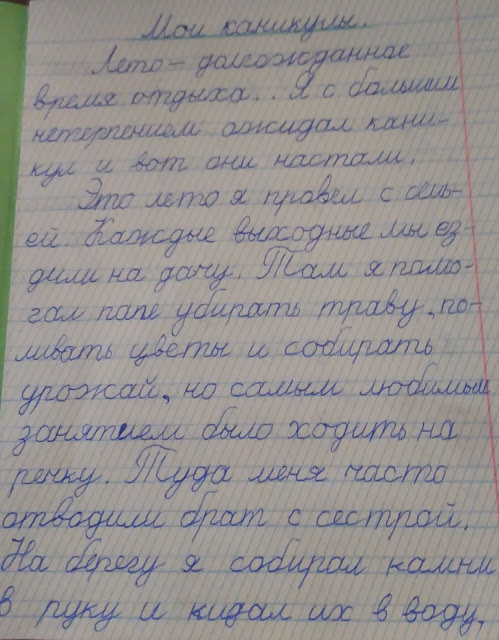 Мои каникулы.
Лето – долгожданное
время отдыха.. Я с большим
нетерпением ожидал кани-
кул и вот они настали.
Это лето я провел с семь-
ей. Каждые выходные мы ез-
дили на дачу. Там я помо-
гал папе убирать траву, по-
ливать цветы и собирать
урожай, но самым любимым
занятием было ходить на
речку. Туда меня часто
отводили брат с сестрой.
На берегу я собирал камни
в руку и кидал их в воду,